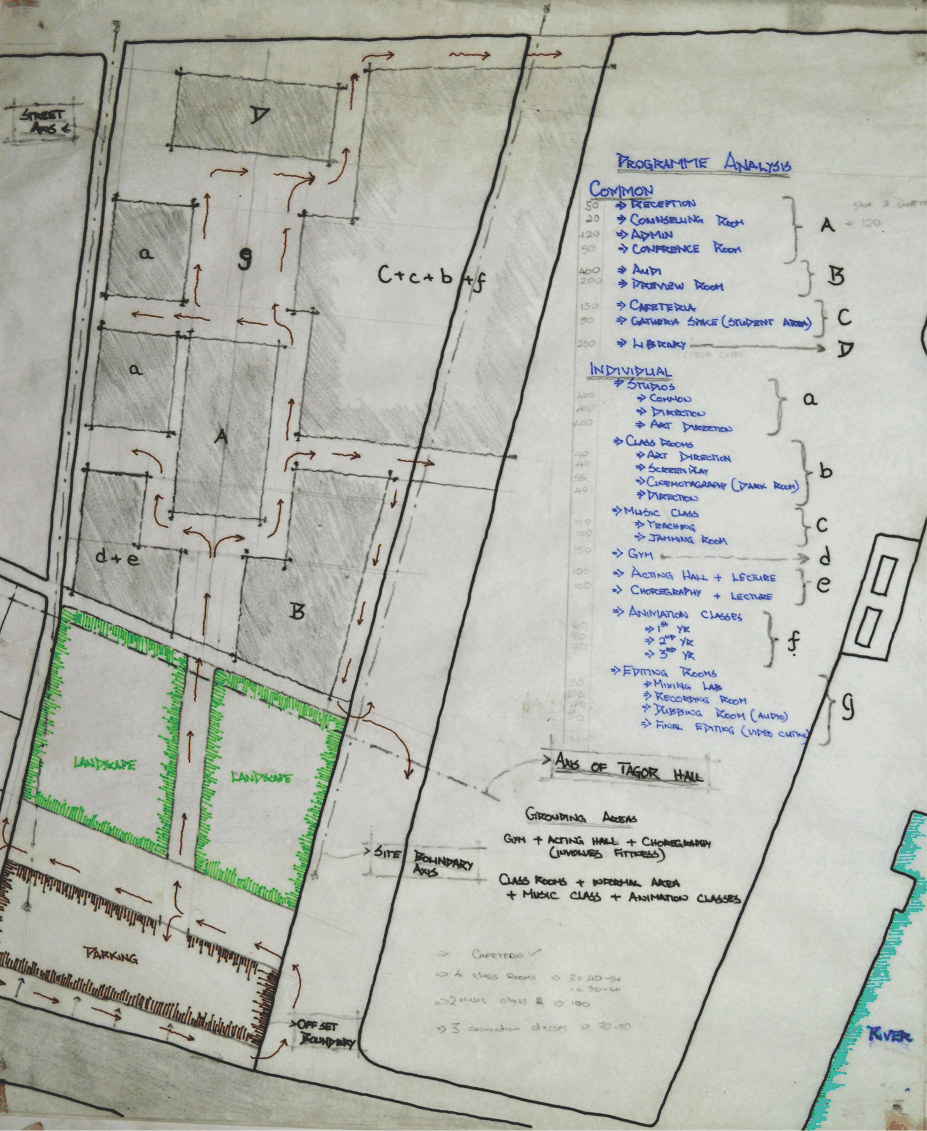 STREET
AXIS
D
a
g
C+c+b+f
a
A
d+e
B
LANDSCAPE
LANDSCAPE
PARKING
PROGRAMME ANALYSIS
COMMON
50 ⇒ RECEPTION
20 ⇒ COUNSELLING ROOM
120 ⇒ ADMIN
50 ⇒ CONFRENCE ROOM
A
+ 120
400 ⇒ AUDI
200 ⇒ PREVIEW ROOM
B
150 ⇒ CAFETERIA
50 ⇒ GATHERIA SPACE (STUDENT AREA)
C
200 ⇒ LIBRARY → D
INDIVIDUAL
⇒ STUDIOS
⇒ COMMON
⇒ DIRECTION
⇒ ART DIRECTION
a
⇒ CLASS ROOMS
⇒ ART DIRECTION
⇒ SCREEN PLAY
⇒ CINEMOTAGRAPHY (DARK ROOM)
⇒ DIRECTION
b
⇒ MUSIC CLASS
⇒ TEACHING
⇒ JAMMING ROOM
C
⇒ GYM → d
⇒ ACTING HALL + LECTURE
⇒ CHOREGRAPHY + LECTURE
e
⇒ ANIMATION CLASSES
⇒ 1ST YR
⇒ 2ND YR
⇒ 3RD YR
f
⇒ EDITING ROOMS
⇒ MIXING LAB
⇒ RECORDING ROOM
⇒ DUBBING ROOM (AUDIO)
⇒ FINAL EDITING (VIDEO CUTTING
g
> AXIS OF TAGOR HALL
GROUDING AREAS
GYM + ACTING HALL + CHOREGRAPHY
(INVOLVES FITNESS)
> SITE BOUNDARY
AXIS
CLASS ROOMS + INFORMAL AREA
+ MUSIC CLASS + ANIMATION CLASSES
> CAFETERIA ✓
⇒ 4 CLASS ROOMS ⇒ 3 = 40-50
1 = 50-60
⇒ 2 MUSIC CLASS ⇒ 100
⇒ 3 ANIMATION CLASSES ⇒
> OFFSET
BOUNDARY
RIVER